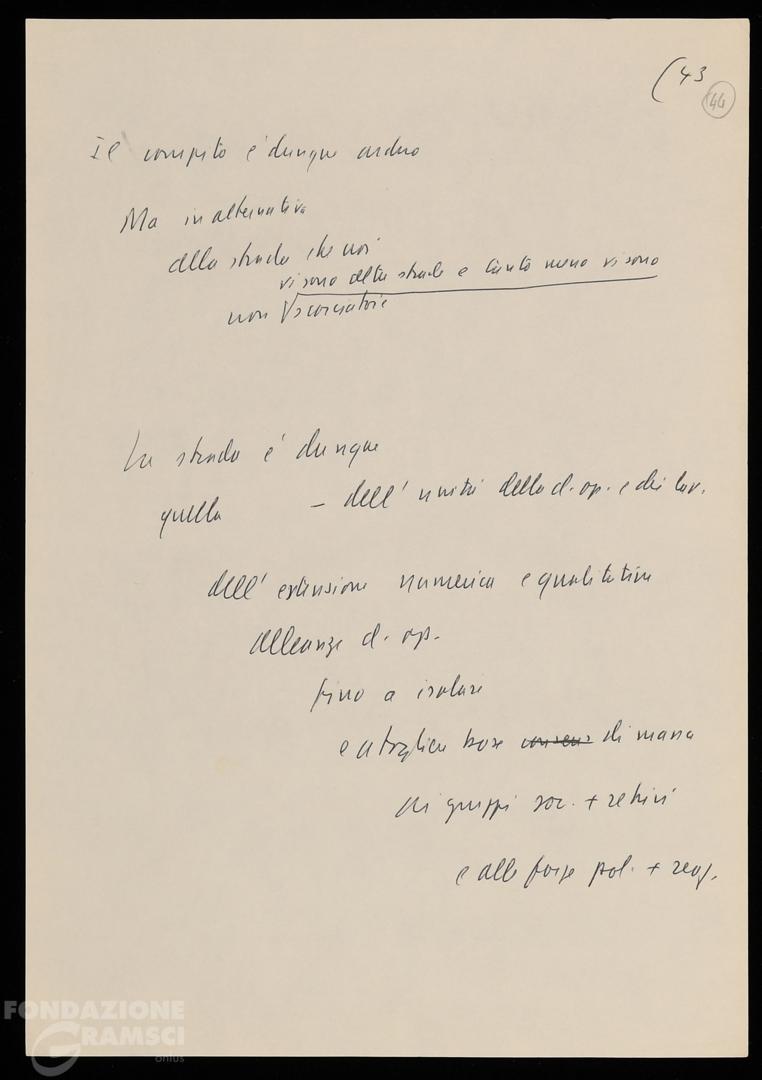 (43
44
Il compito è dunque arduo
Ma in alternativa
alla strada che noi
vi sono altre strade e tanto meno vi sono
non scorciatoie
La strada è dunque
quella – dell'unità della cl. op. e dei lav.
dell'estensione numerica e qualitativa
alleanze cl. op.
fino a isolare
e a togliere base consens di massa
ai gruppi soc. + retrivi
e alle forze pol. + reaz.
FONDAZIONE
GRAMSCI
onlus